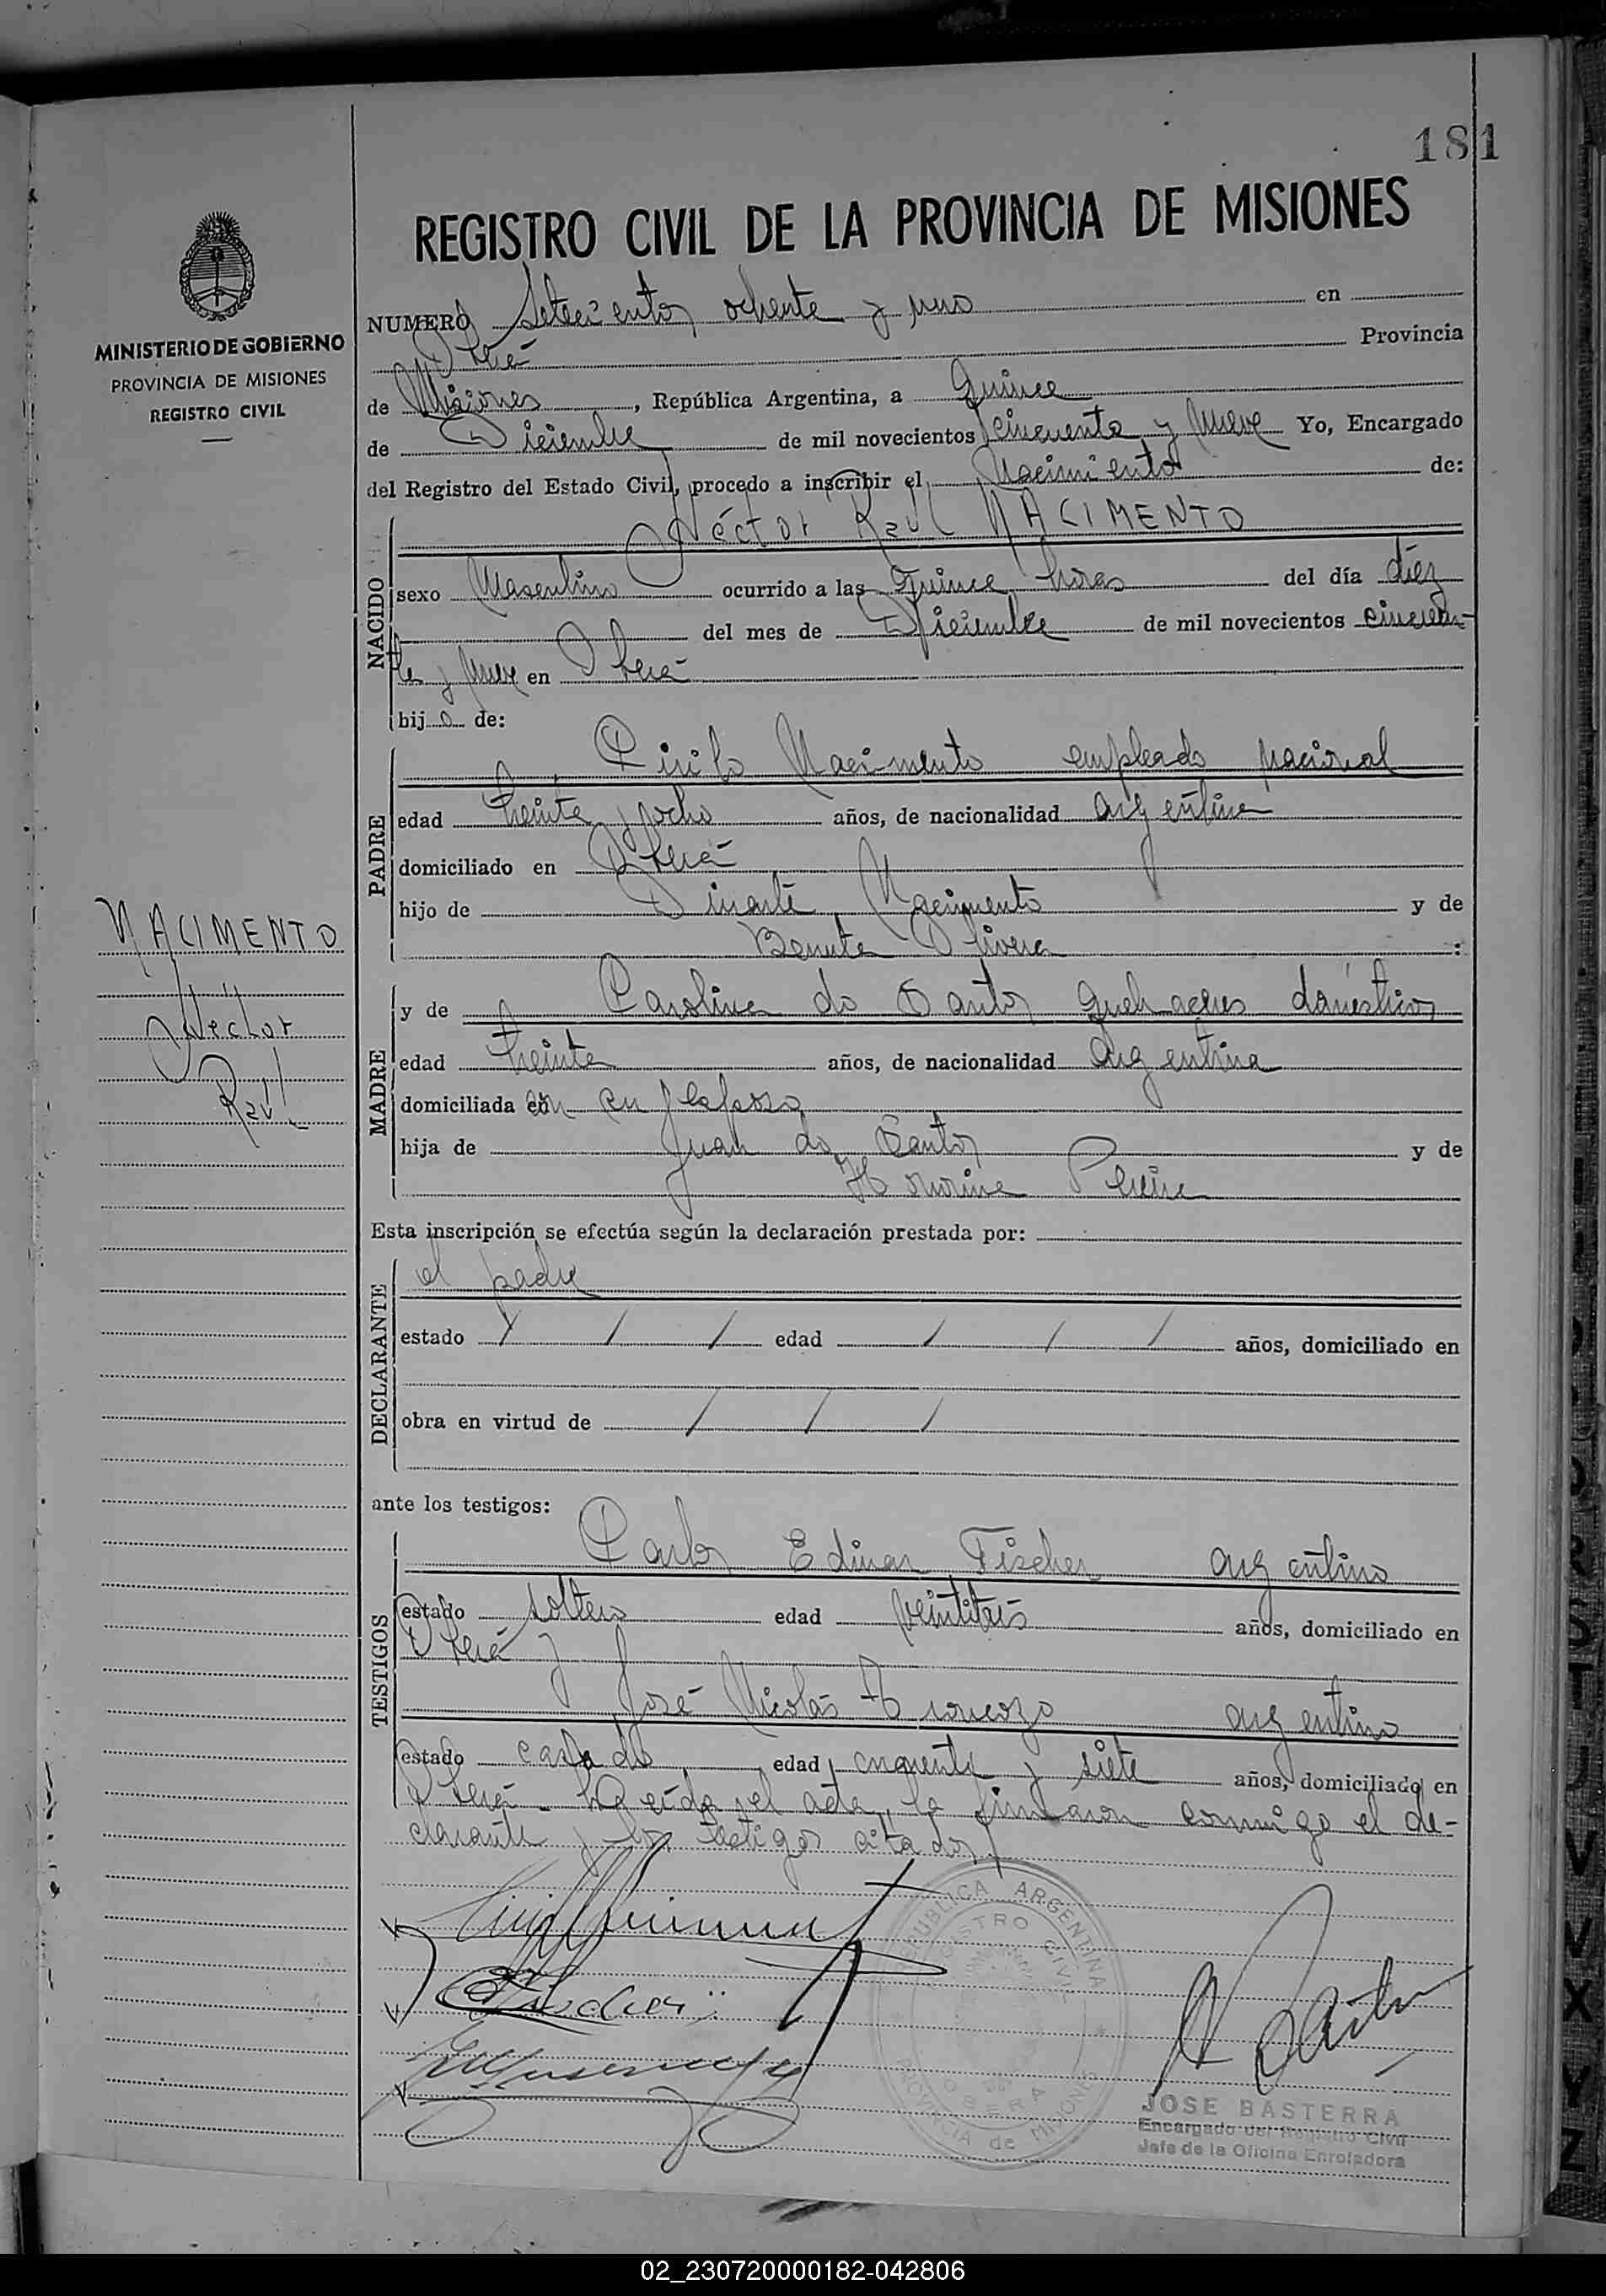 181
REGISTRO CIVIL DE LA PROVINCIA DE MISIONES
MINISTERIO DE GOBIERNO
PROVINCIA DE MISIONES
REGISTRO CIVIL
NUMERO Setecientos ochenta y uno en
Oberá Provincia
de Misiones, República Argentina, a Quince
de Diciembre de mil novecientos cincuenta y nueve Yo, Encargado
del Registro del Estado Civil, procedo a inscribir el Nacimiento de:
NACIDO
Héctor Raúl NACIMENTO
sexo Masculino ocurrido a las Quince horas del día diez
del mes de Diciembre de mil novecientos cincuen-
ta y nueve en Oberá
hijo de:
PADRE
Cirilo Nacimento empleado nacional
edad treinta y ocho años, de nacionalidad argentina
domiciliado en Oberá
hijo de Duarte Nacimento y de
Olivera:
MADRE
y de Carolina do Santos quehaceres domésticos
edad treinta años, de nacionalidad Argentina
domiciliada con su esposo
hija de Juan do Santos y de
Honorina Pereira
NACIMENTO
Héctor
Raúl
Esta inscripción se efectúa según la declaración prestada por:
DECLARANTE
el padre
estado / / / edad / / / años, domiciliado en
obra en virtud de / / /
ante los testigos:
TESTIGOS
Carlos Edinar Fischer argentino
estado soltero edad veintitrés años, domiciliado en
Oberá y
José Nicolás argentino
estado casado edad cincuenta y siete años, domiciliado en
Oberá - Leída el acta, la firmaron conmigo el de-
clarante y los testigos citados
REPUBLICA ARGENTINA
REGISTRO CIVIL
OBERA
PROVINCIA de MISIONES
JOSE BASTERRA
Encargado del Registro Civil
Jefe de la Oficina Enroladora
02_230720000182-042806